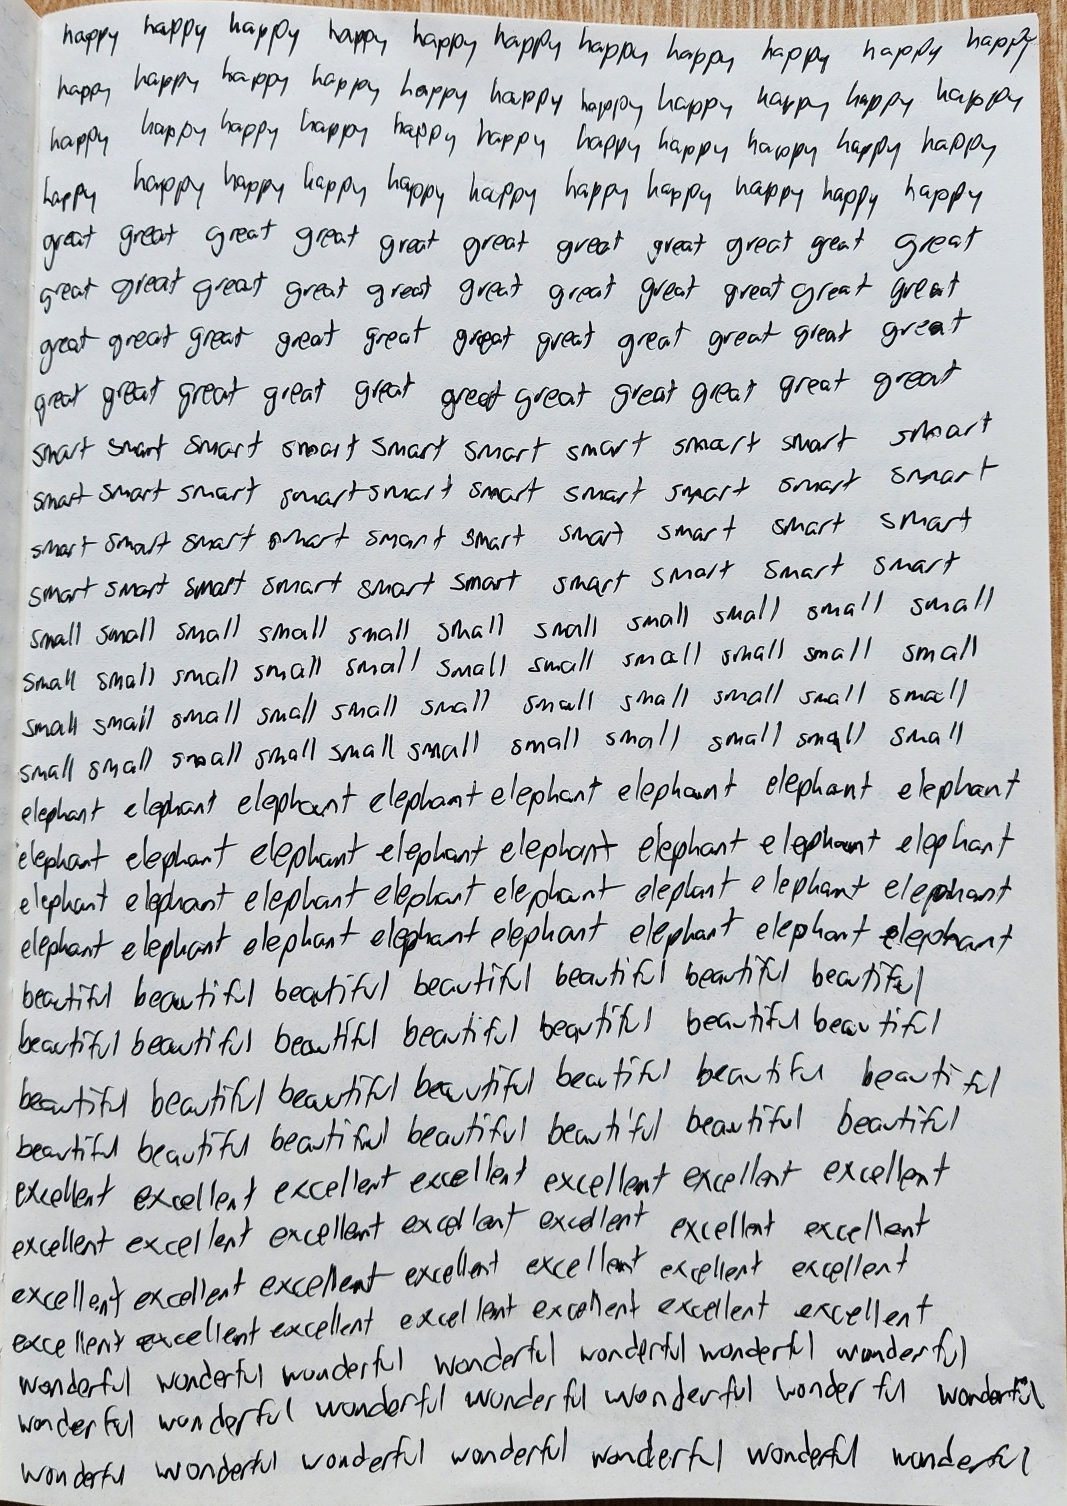 happy happy happy happy happy happy happy happy happy happy happy
happy happy happy happy happy happy happy happy happy happy happy
happy happy happy happy happy happy happy happy happy happy happy
happy happy happy happy happy happy happy happy happy happy happy
great great great great great great great great great great great
great great great great great great great great great great great
great great great great great great great great great great great
great great great great great great great great great great great
smart smart smart smart smart smart smart smart smart smart
smart smart smart smart smart smart smart smart smart smart
smart smart smart smart smart smart smart smart smart smart
smart smart smart smart smart smart smart smart smart smart
small small small small small small small small small small small
small small small small small small small small small small small
small small small small small small small small small small small
small small small small small small small small small small small
elephant elephant elephant elephant elephant elephant elephant elephant
elephant elephant elephant elephant elephant elephant elephant elephant
elephant elephant elephant elephant elephant elephant elephant elephant
elephant elephant elephant elephant elephant elephant elephant elephant
beautiful beautiful beautiful beautiful beautiful beautiful beautiful
beautiful beautiful beautiful beautiful beautiful beautiful beautiful
beautiful beautiful beautiful beautiful beautiful beautiful beautiful
beautiful beautiful beautiful beautiful beautiful beautiful beautiful
excellent excellent excellent excellent excellent excellent excellent
excellent excellent excellent excellent excellent excellent excellent
excellent excellent excellent excellent excellent excellent excellent
excellent excellent excellent excellent excellent excellent excellent
wonderful wonderful wonderful wonderful wonderful wonderful wonderful
wonderful wonderful wonderful wonderful wonderful wonderful wonderful
wonderful wonderful wonderful wonderful wonderful wonderful wonderful